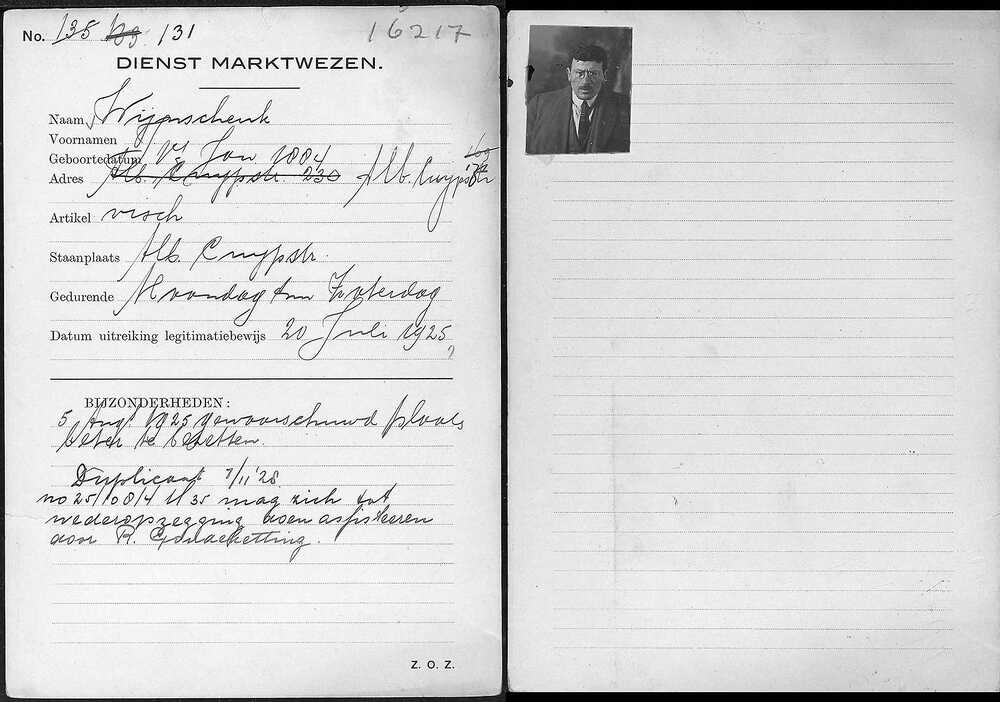 No. 135 109 131 16217
DIENST MARKTWEZEN.
Naam Wijnschenk
Voornamen J
Geboortedatum Jan 1884
Adres Alb. Cuypstr. 230 Alb. Cuypstr
Artikel visch
Staanplaats Alb. Cuypstr.
Gedurende Maandag t/m Zaterdag
Datum uitreiking legitimatiebewijs 20 Juli 1925
BIJZONDERHEDEN:
5 Aug 1925 gewaarschuwd plaats
beter te bezetten.
Duplicaat 7/11 '28
no 25/108/4 M 35 mag zich tot
wederopzegging doen assisteeren
door R. Goudketting.
Z. O. Z.